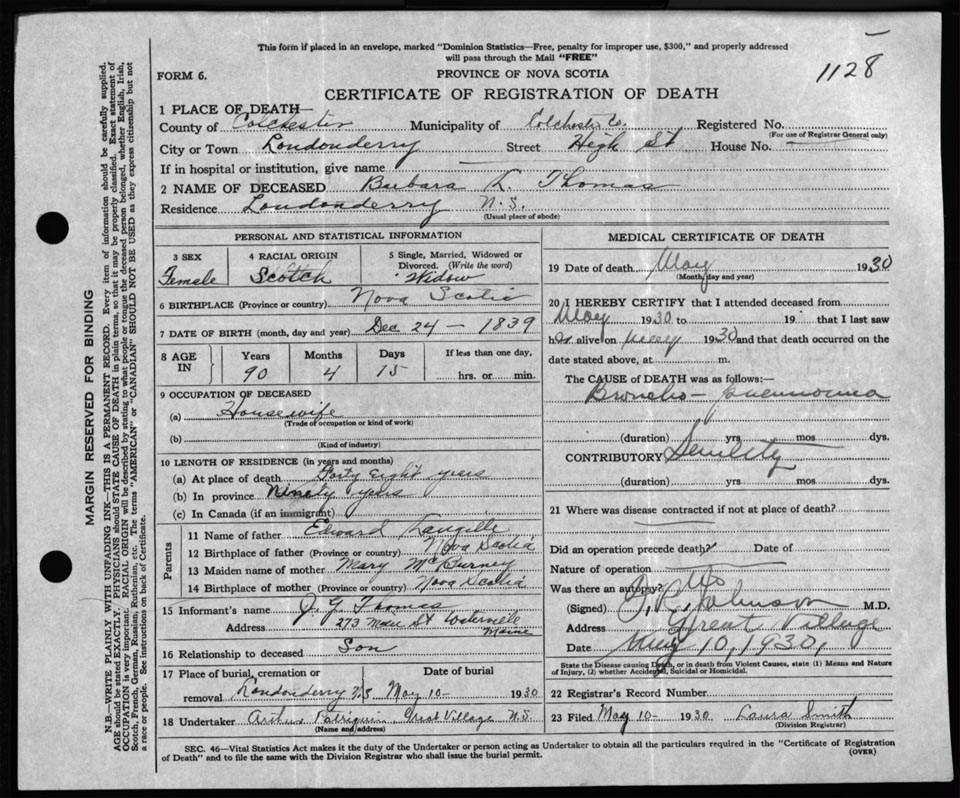 This form if placed in an envelope, marked "Dominion Statistics—Free, penalty for improper use, $300," and properly addressed
will pass through the Mail "FREE"
1128
FORM 6.
PROVINCE OF NOVA SCOTIA
CERTIFICATE OF REGISTRATION OF DEATH
1 PLACE OF DEATH—
County of Colchester Municipality of Colchester Co. Registered No.
(For use of Registrar General only)
City or Town Londonderry Street High St House No.
If in hospital or institution, give name
2 NAME OF DECEASED Barbara L. Thomas
Residence Londonderry N.S.
(Usual place of abode)
PERSONAL AND STATISTICAL INFORMATION
3 SEX 4 RACIAL ORIGIN 5 Single, Married, Widowed or
Divorced. (Write the word)
Female Scotch Widow
6 BIRTHPLACE (Province or country) Nova Scotia
7 DATE OF BIRTH (month, day and year) Dec 24 — 1839
8 AGE IN Years Months Days If less than one day,
90 4 15 hrs. or min.
9 OCCUPATION OF DECEASED
(a) Housewife
(Trade of occupation or kind of work)
(b)
(Kind of industry)
10 LENGTH OF RESIDENCE (in years and months)
(a) At place of death Forty Eight years
(b) In province Ninety years
(c) In Canada (if an immigrant)
Parents
11 Name of father Edward Langille
12 Birthplace of father (Province or country) Nova Scotia
13 Maiden name of mother Mary McBurney
14 Birthplace of mother (Province or country) Nova Scotia
15 Informant's name J. G. Thomas
Address 273 Main St Waterville
Maine
16 Relationship to deceased Son
17 Place of burial, cremation or Date of burial
removal Londonderry N.S May 10— 1930
18 Undertaker Arthur Patriquin Great Village N.S.
(Name and address)
MEDICAL CERTIFICATE OF DEATH
19 Date of death May 1930
(Month, day and year)
20 I HEREBY CERTIFY that I attended deceased from
May 1930 to 19 that I last saw
her alive on 1930 and that death occurred on the
date stated above, at m.
The CAUSE of DEATH was as follows:—
Broncho - Pneumonia
(duration) yrs. mos dys.
CONTRIBUTORY Senility
(duration) yrs. mos dys.
21 Where was disease contracted if not at place of death?
Did an operation precede death? Date of
Nature of operation
Was there an autopsy? No
(Signed) Johnson M.D.
Address Great Village
Date May 10, 1930,
State the Disease causing Death, or in death from Violent Causes, state (1) Means and Nature
of Injury, (2) whether Accidental, Suicidal or Homicidal.
22 Registrar's Record Number
23 Filed May 10— 1930 Laura Smith
(Division Registrar)
SEC. 46—Vital Statistics Act makes it the duty of the Undertaker or person acting as Undertaker to obtain all the particulars required in the "Certificate of Registration
of Death" and to file the same with the Division Registrar who shall issue the burial permit. (OVER)
MARGIN RESERVED FOR BINDING
N.B.—WRITE PLAINLY WITH UNFADING INK—THIS IS A PERMANENT RECORD. Every item of information should be carefully supplied.
AGE should be stated EXACTLY. PHYSICIANS should STATE CAUSE OF DEATH in plain terms, so that it may be properly classified. Exact statement of
OCCUPATION is very important. RACIAL ORIGIN will be described by stating to what people or tongue the deceased person belonged, whether English, Irish,
Scotch, French, German, Russian, Ruthenian, etc. The terms "AMERICAN" or "CANADIAN" SHOULD NOT BE USED as they express citizenship but not
a race or people. See instructions on back of Certificate.